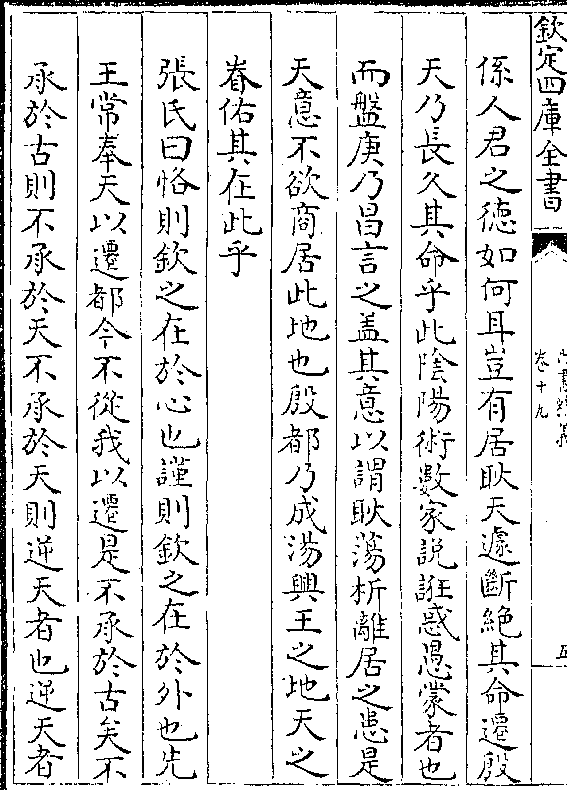 欽定四庫全書
卷十九
係人君之德如何耳豈有居耿天遽斷絶其命遷殷
天乃長久其命乎此陰陽術數家説誑惑愚蒙者也
而盤庚乃昌言之盖其意以謂耿蕩析離居之患是
天意不欲商居此地也殷都乃成湯興王之地天之
眷佑其在此乎
張氏曰恪則欽之在於心也謹則欽之在於外也先
王常奉天以遷都今不從我以遷是不承於古矣不
承於古則不承於天不承於天則逆天者也逆天者